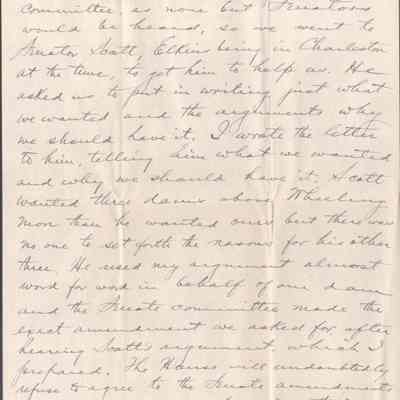 Committee as none but Senators
would be heard, so we went to
Senator Scott, Elkins being in Charleston
at the time, to get him to help us. He
asked us to put in writing just what
we wanted and the arguments why
we should have it. I wrote the letter
to him, telling him what we wanted
and why we should have it. Scott
wanted three dams above Wheeling
more than he wanted ours but there was
no one to set forth the reasons for his other
three. He used my argument almost
word for word in behalf of our dam
and the Senate committee made the
exact amendment we asked for after
hearing Scott's argument which I
prepared. The House will undoubtedly
refuse to agree to the Senate amendments